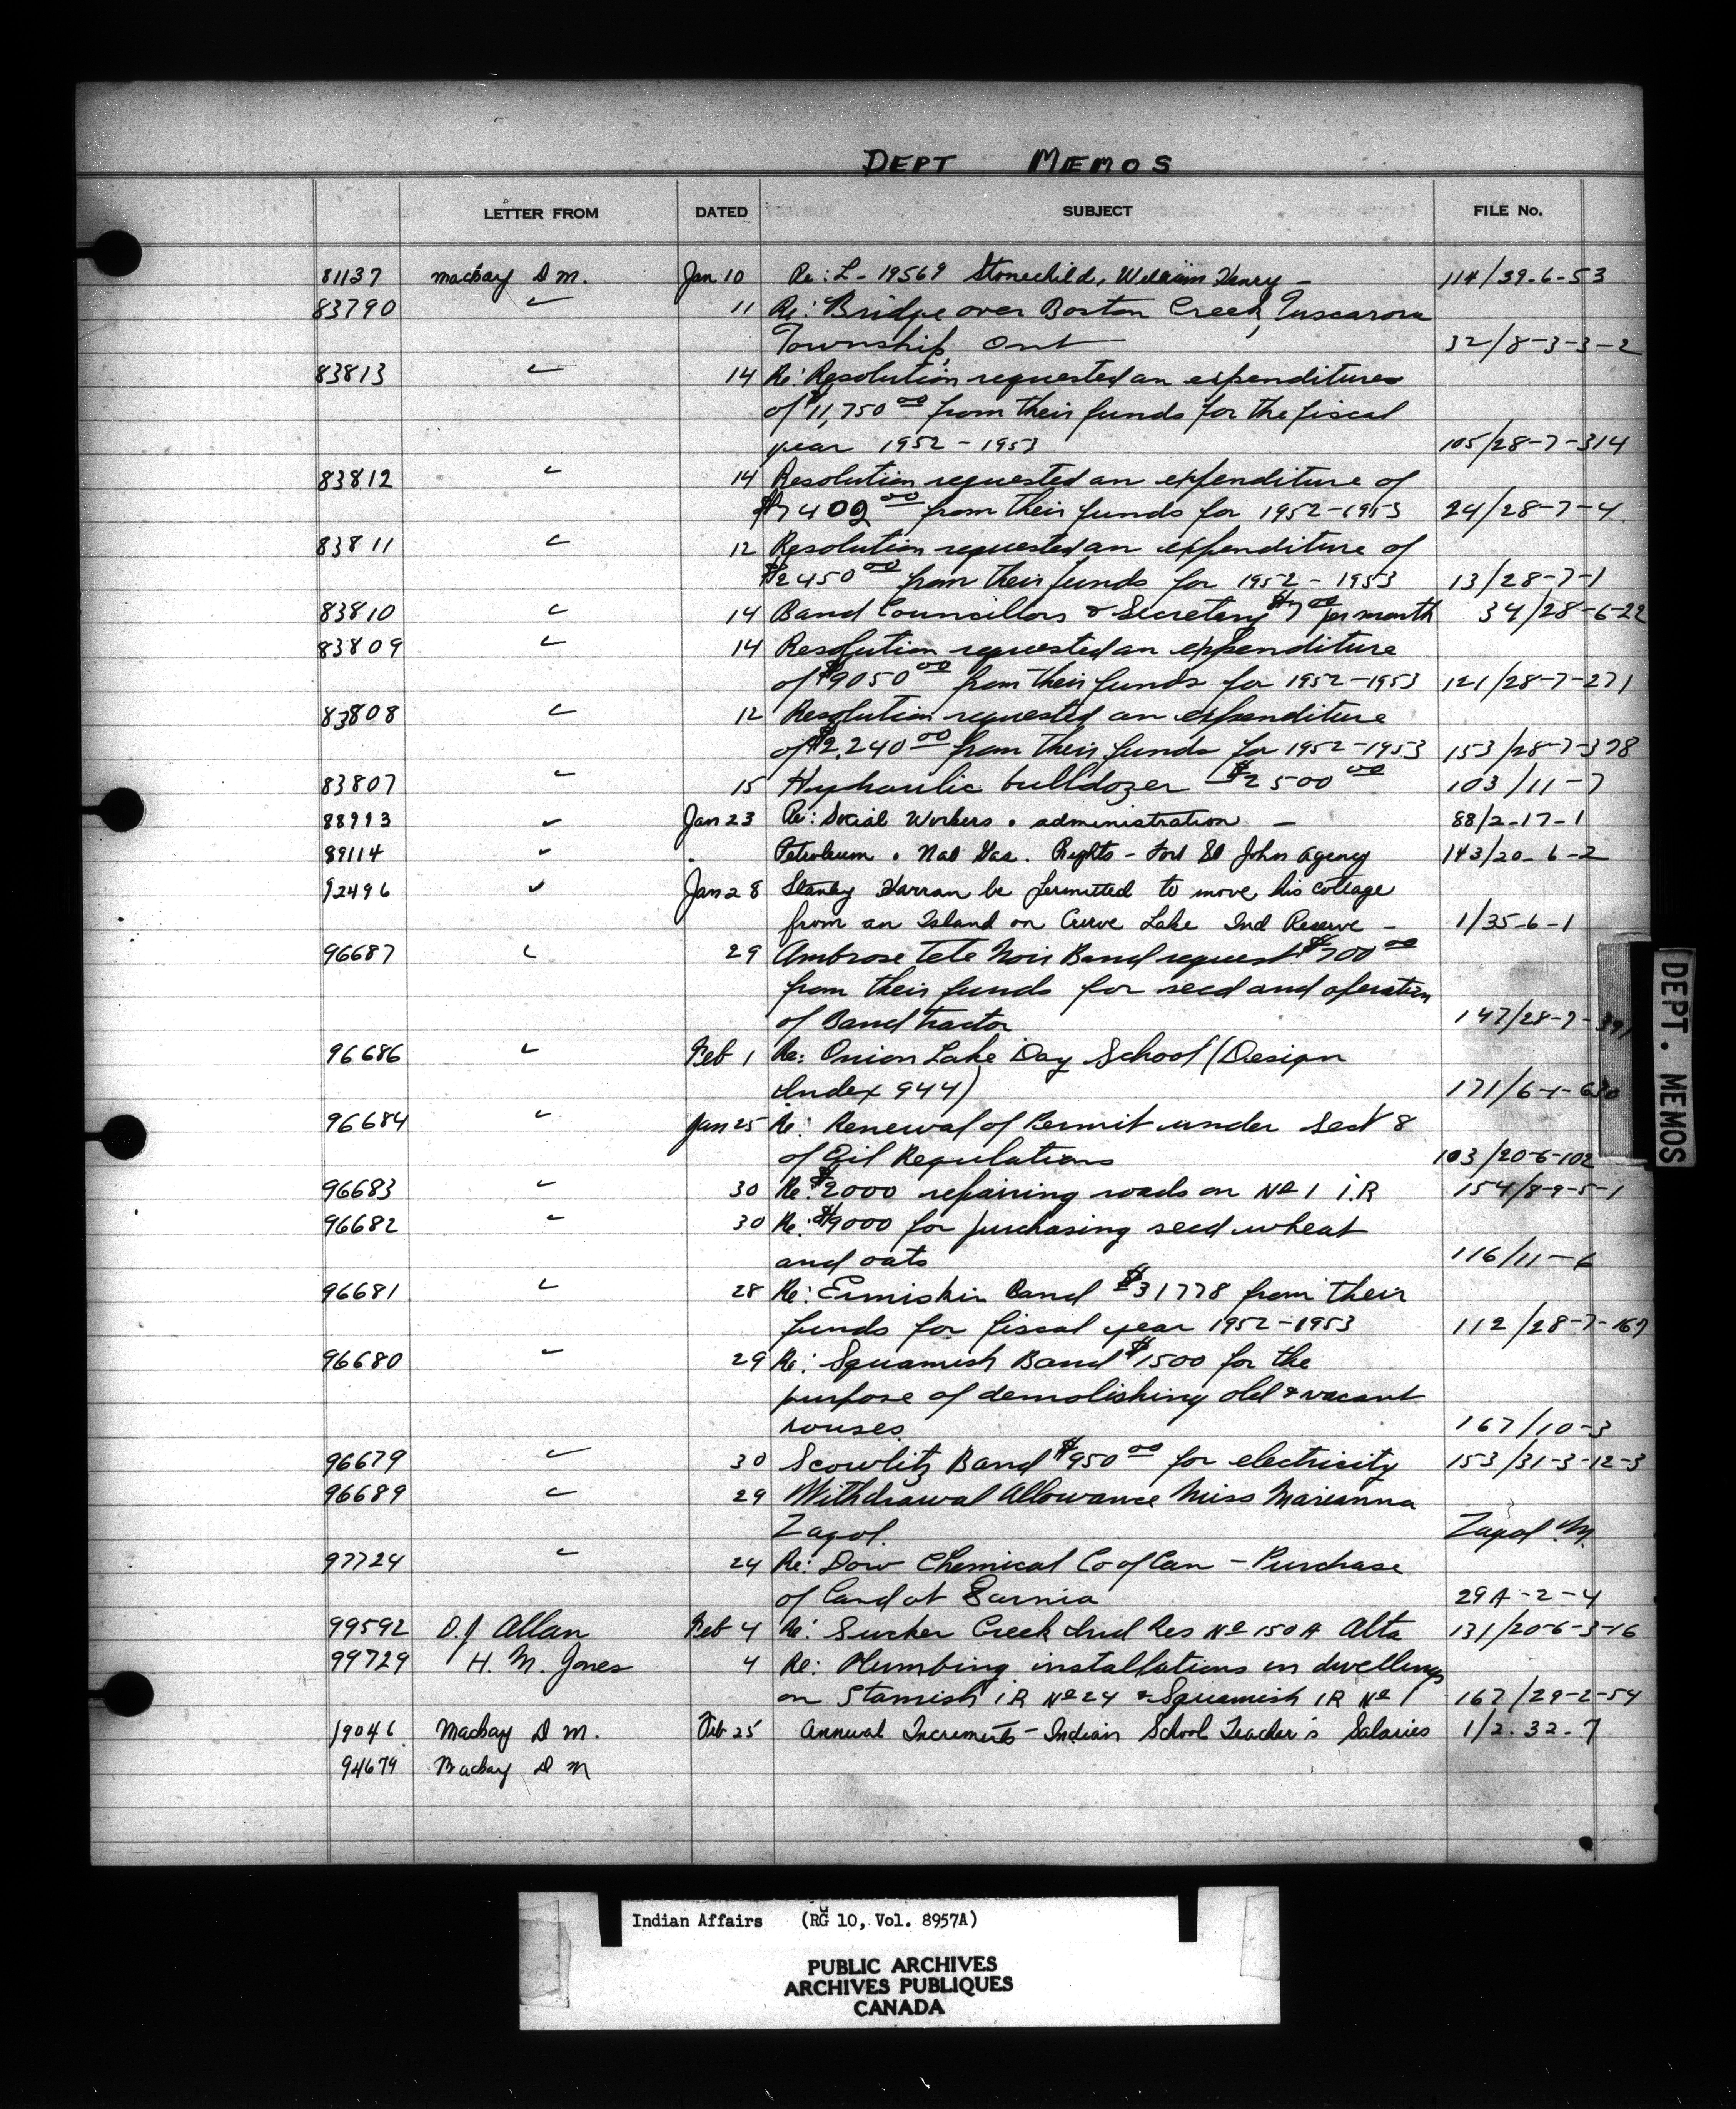 DEPT MEMOS
LETTER FROM DATED SUBJECT FILE No.
81137 Mackay D M. Jan 10 Re: L- 19569 Stonechild, William Henry - 114/39-6-53
83790 " 11 Re: Bridge over Boston Creek, Tuscarora
Township, Ont 32/8-3-3-2
83813 " 14 Re: Resolution requested an expenditures
of $11,750 00 from their funds for the fiscal
year 1952-1953 105/28-7-314
83812 " 14 Resolution requested an expenditure of
$7402 00 from their funds for 1952-1953 24/28-7-4
83811 " 12 Resolution requested an expenditure of
$2450 00 from their funds for 1952-1953 13/28-7-1
83810 " 14 Band Councillors & Secretary $7 00 per month 34/28-6-22
83809 " 14 Resolution requested an expenditure
of $9050 00 from their funds for 1952-1953 121/28-7-271
83808 " 12 Resolution requested an expenditure
of $2,240 00 from their funds for 1952-1953 153/28-7-378
83807 " 15 Hydraulic bulldozer $2500 00 103/11-7
88993 " Jan 23 Re: Social Workers . administration - 88/2-17-1
89114 " . Petroleum . Nat Gas. Rights - Fort St John Agency 143/20-6-2
92496 " Jan 28 Stanley Harran be permitted to move his cottage
from an Island on Curve Lake Ind Reserve - 1/35-6-1
96687 " 29 Ambrose Tete Noir Band request $700 00
from their funds for seed and operation
of Band tractor 147/28-7-
96686 " Feb 1 Re: Onion Lake Day School (Design
Index 944) 171/6-1-630
96684 " Jan 25 Re: Renewal of Permit under Sect 8
of Oil Regulations 103/20-6-102
96683 " 30 Re: $2000 repairing roads on No 1 I.R 154/8-9-5-1
96682 " 30 Re: $9000 for purchasing seed wheat
and oats 116/11-6
96681 " 28 Re: Ermiskin Band $31778 from their
funds for fiscal year 1952-1953 112/28-7-167
96680 " 29 Re: Squamish Band $1500 for the
purpose of demolishing old & vacant
houses. 167/10-3
96679 " 30 Scowlitz Band $950 00 for electricity 153/31-3-12-3
96689 " 29 Withdrawal Allowance Miss Marianna
Zagol. Zagol. M.
97724 " 24 Re: Dow Chemical Co of Can - Purchase
of Land at Sarnia 29A-2-4
99592 D.J Allan Feb 4 Re: Sucker Creek Ind Res No 150A Alta 131/20-6-3-16
99729 H. M. Jones 4 Re: Plumbing installations in dwellings
on Stamish I.R No 24 & Squamish IR No 1 167/29-2-54
19046 Mackay D M. Feb 25 Annual Increments - Indian School Teacher's Salaries 1/2-32-7
94679 Mackay D M
DEPT. MEMOS
Indian Affairs (RG 10, Vol. 8957A)
PUBLIC ARCHIVES
ARCHIVES PUBLIQUES
CANADA